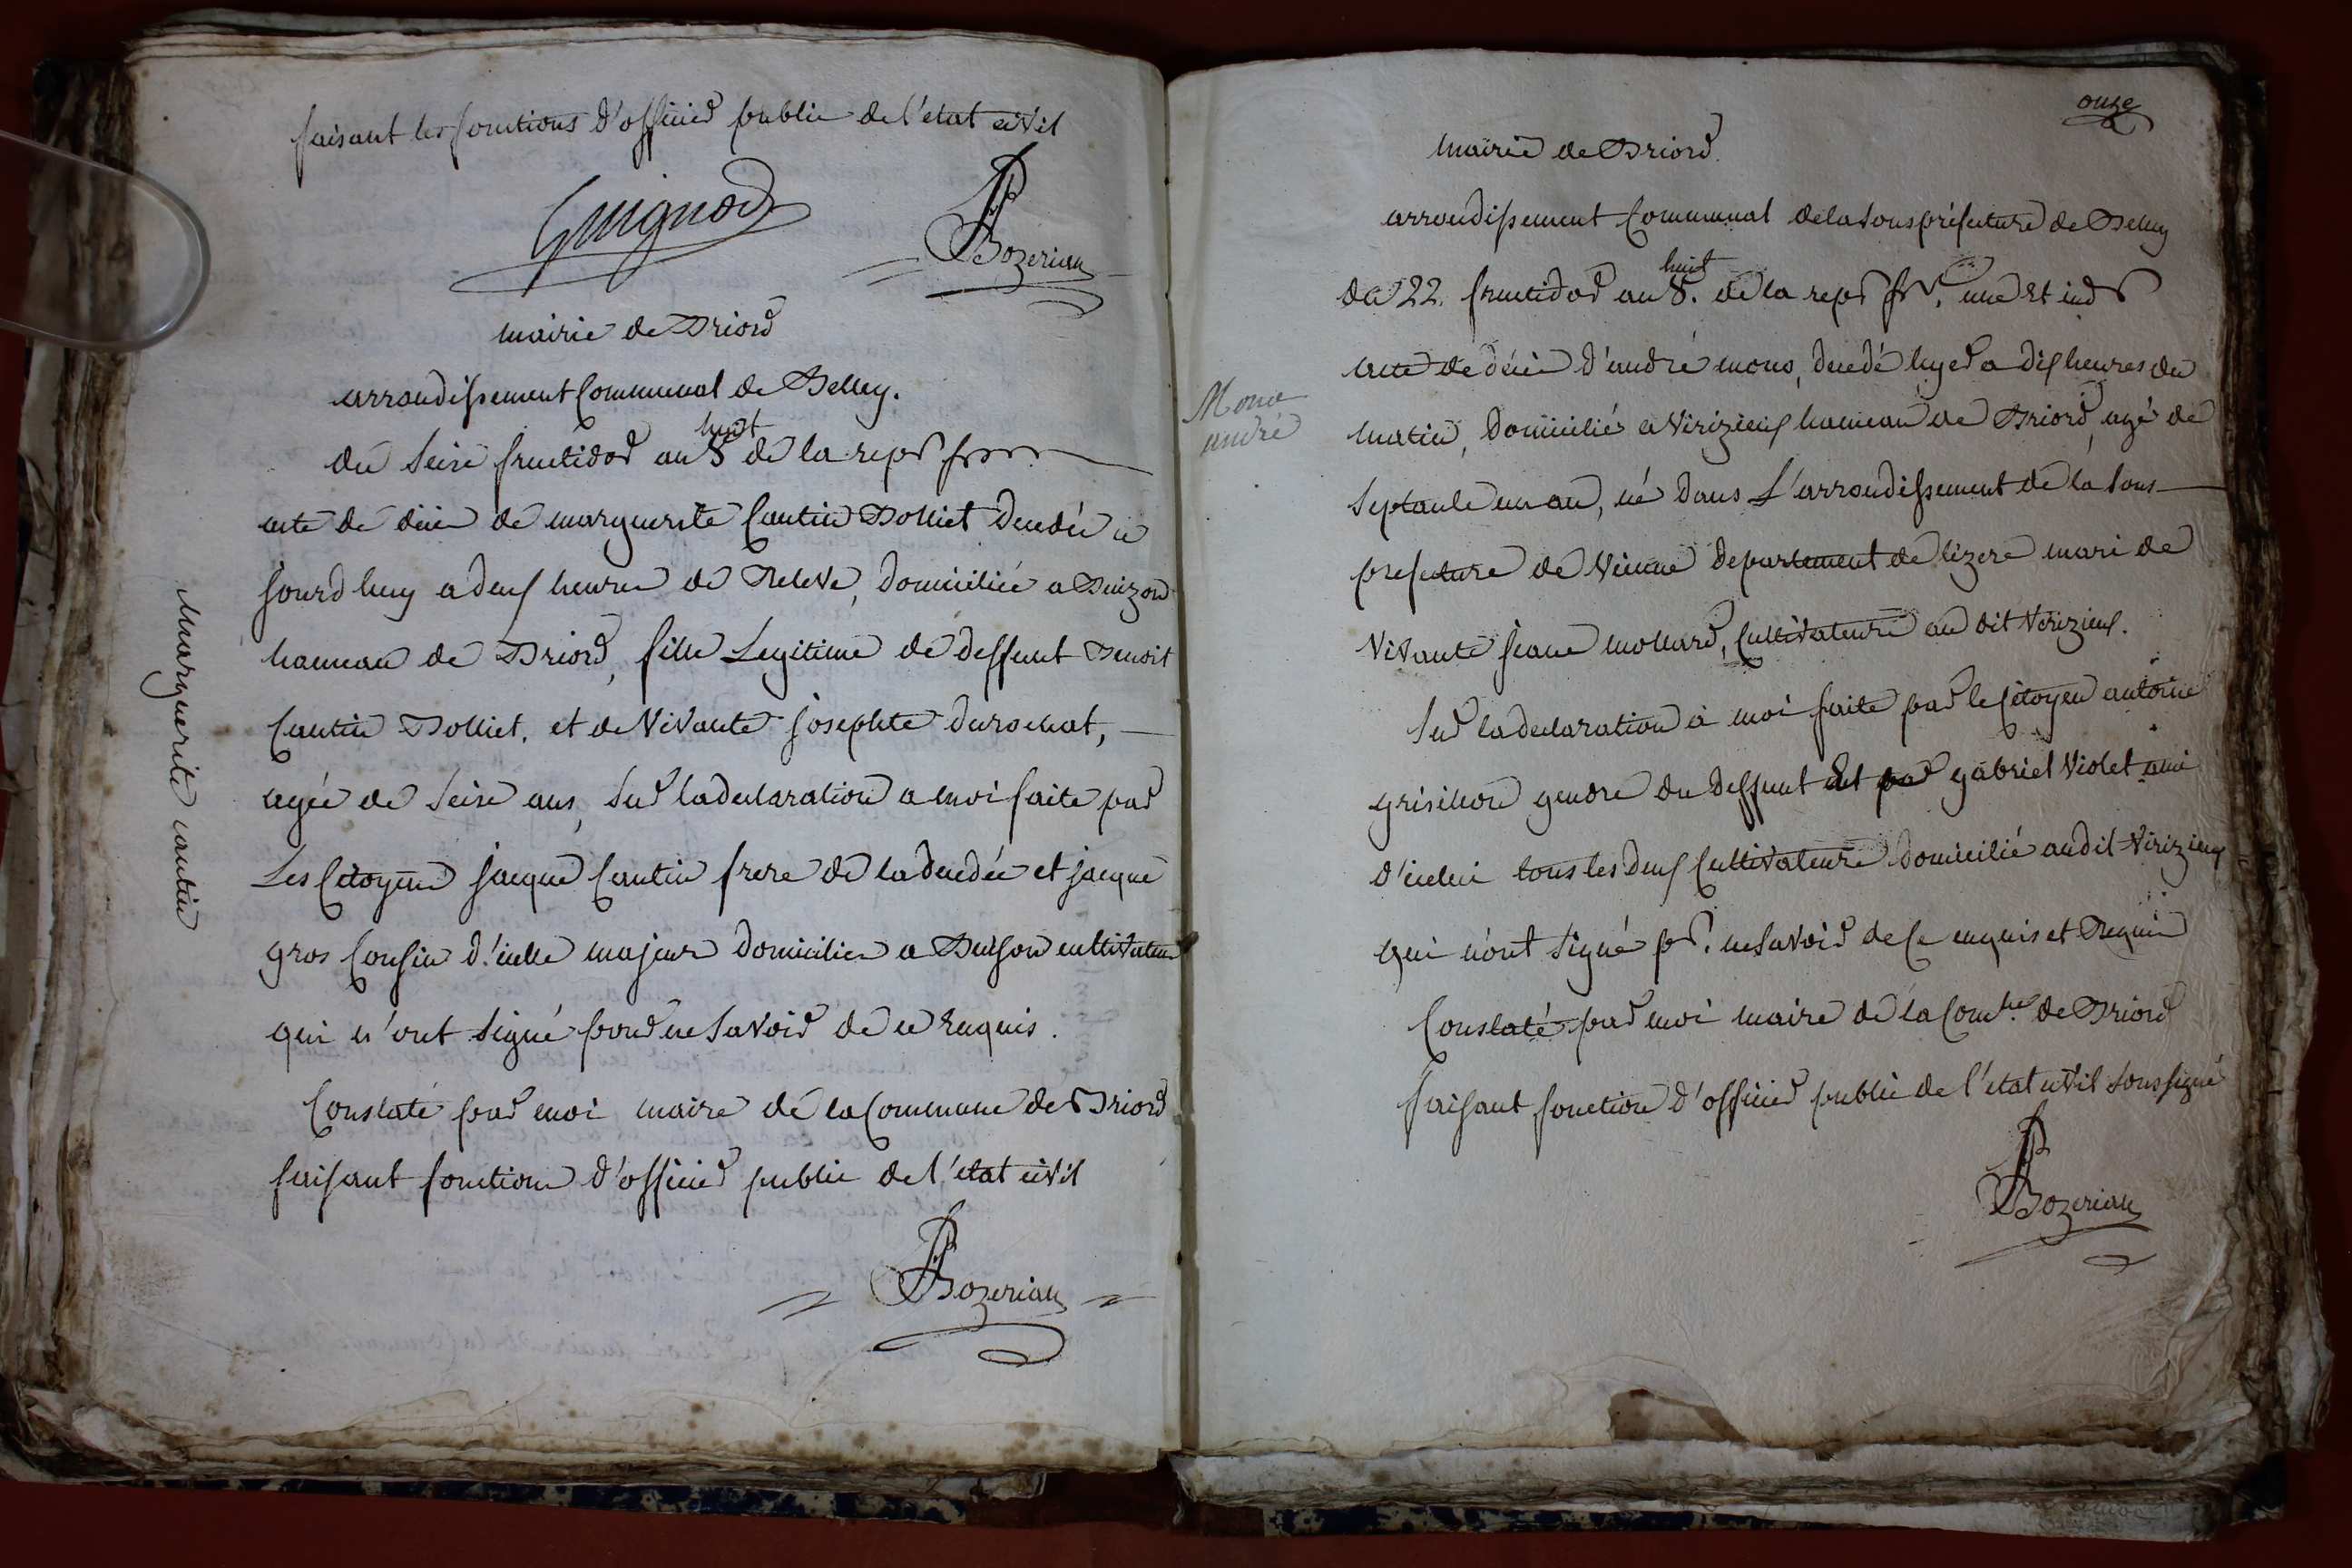 faisant les fonctions d'officier public de l'etat civil
Guignod
Bozerian
mairie de Briord
arrondissement Communal de Belley.
huit
du Seise fructidor an 8 de la rep
acte de décé de marguerite Cantin Dolliet Decedée ce
jourd huy a deux heures de Releve, domiciliée a Buizon
hameau de Briord, fille Legitime de deffunt Benoit
Cantin Dolliet, et de Vivante josephte durochat,
agée de Seise ans, Sur la declaration a moi faite par
Les Citoyens jacque Cantin frere de la decedée et jacque
gros Cousin d'icelle majeurs domiciliés a Buison cultivateurs
qui n'ont Signé pour ne Savoir de ce Enquis.
Constaté par moi maire de la Commune de Briord
faisant fonctions d'officier public de l'etat civil
Bozerian
Marguerite cantin
onze
mairie de Briord
arrondissement Communal de la Sous préfecture de Belley
huit
du 22. fructidor an 8. de la rep fr. une Et ind
acte de décé d'andré mons, decedé hyer a dix heures du
matin, Domicilié a Verizieux hameau de Briord, agé de
Septante un an, né dans L'arrondissement de la Sous
prefecture de Vienne departement de lizere mari de
Vivante jeane mollard, Cultivateurs au dit Verizieux.
Sur la declaration à moi faite par le Citoyen antoine
grisillon gendre du deffunt Et par gabriel Violet ami
d'icelui tous les deux Cultivateurs Domicilié audit Virizieux
qui n'ont Signé pr. ne Savoir de Ce enquis et Requis
Constaté par moi maire de la Comne de Briord
faisant fonction d'officier public de l'etat civil Soussigné
Bozerian
Mons
andré